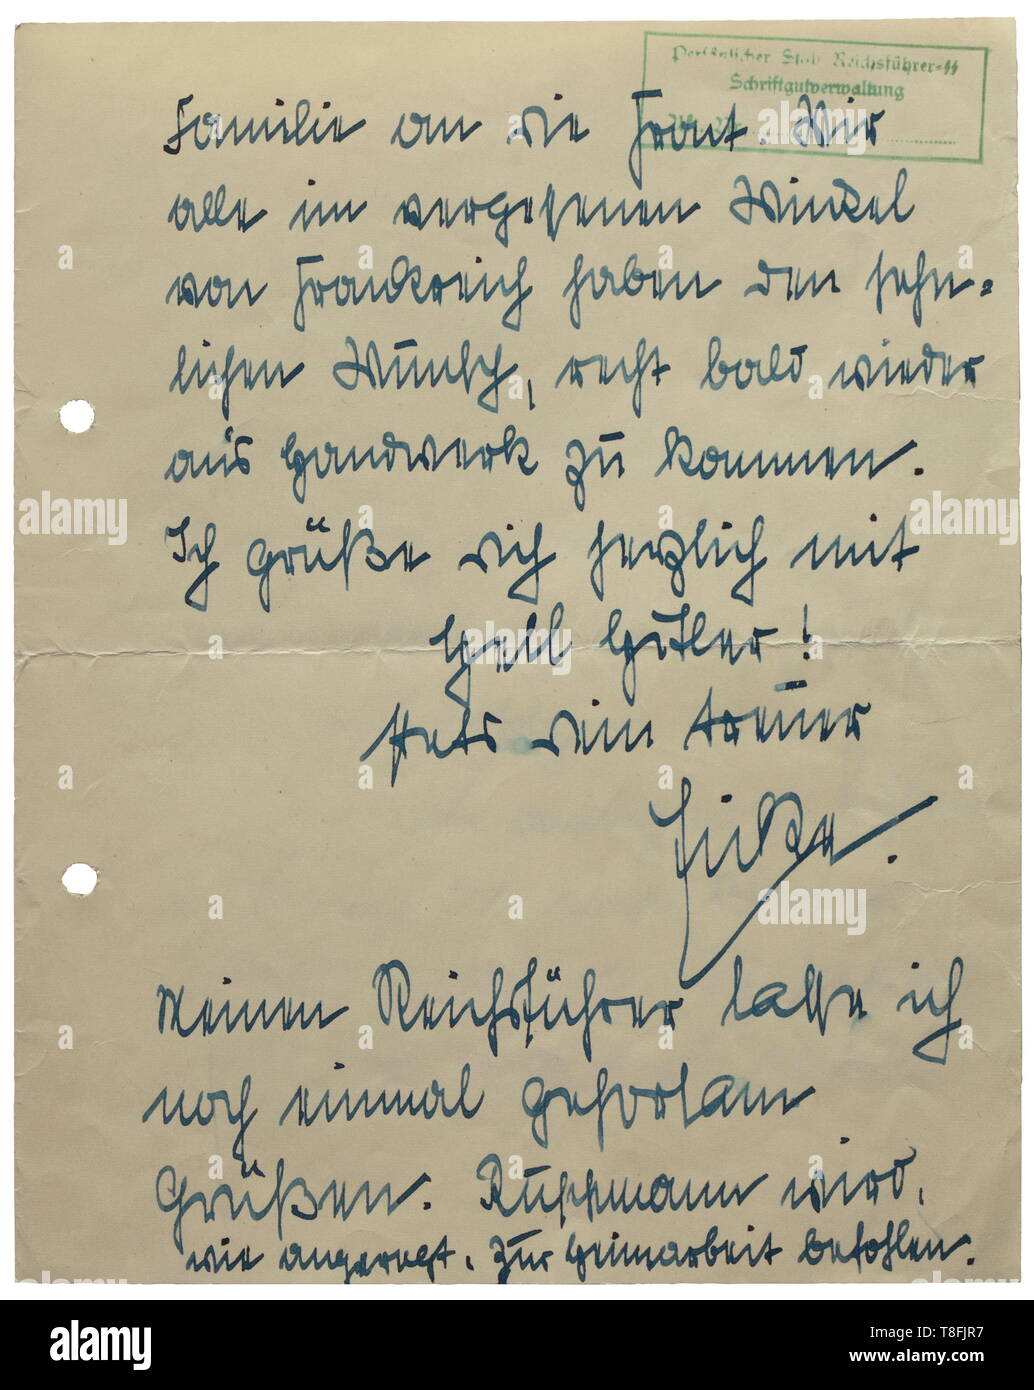 Persönlicher Stab Reichsführer-SS
Schriftgutverwaltung
Familie an die Front. Wir
alle im vergessenen Winkel
von Frankreich haben den sehn=
lichen Wunsch, recht bald wieder
ans Handwerk zu kommen.
Ich grüße dich herzlich mit
Heil Hitler!
stets dein treuer
Eicke.
Meinen Reichsführer lasse ich
noch einmal gehorsam
Grüßen. wird,
wie angeregt, zur Heimarbeit befohlen.
alamy
Image ID: T8FJR7
www.alamy.com